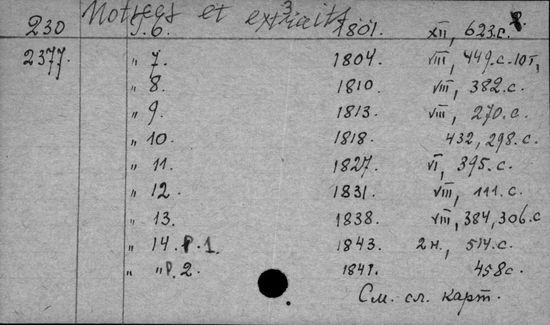 Notices et extraits
3 8.
230 T. 6. 1801. XII, 623.c.
2377. " 7. 1804. VIII, 449.c. 10т,
" 8. 1810. VIII, 382.c.
" 9. 1813. VIII, 270.c.
" 10. 1818. 432, 298.c.
" 11. 1827. VI, 395.c.
" 12. 1831. VIII, 111.c.
" 13. 1838. VIII, 384, 306.c
" 14. P. 1. 1843. 2н., 514.c.
" " P. 2. 1841. 458c.
См. сл. карт.